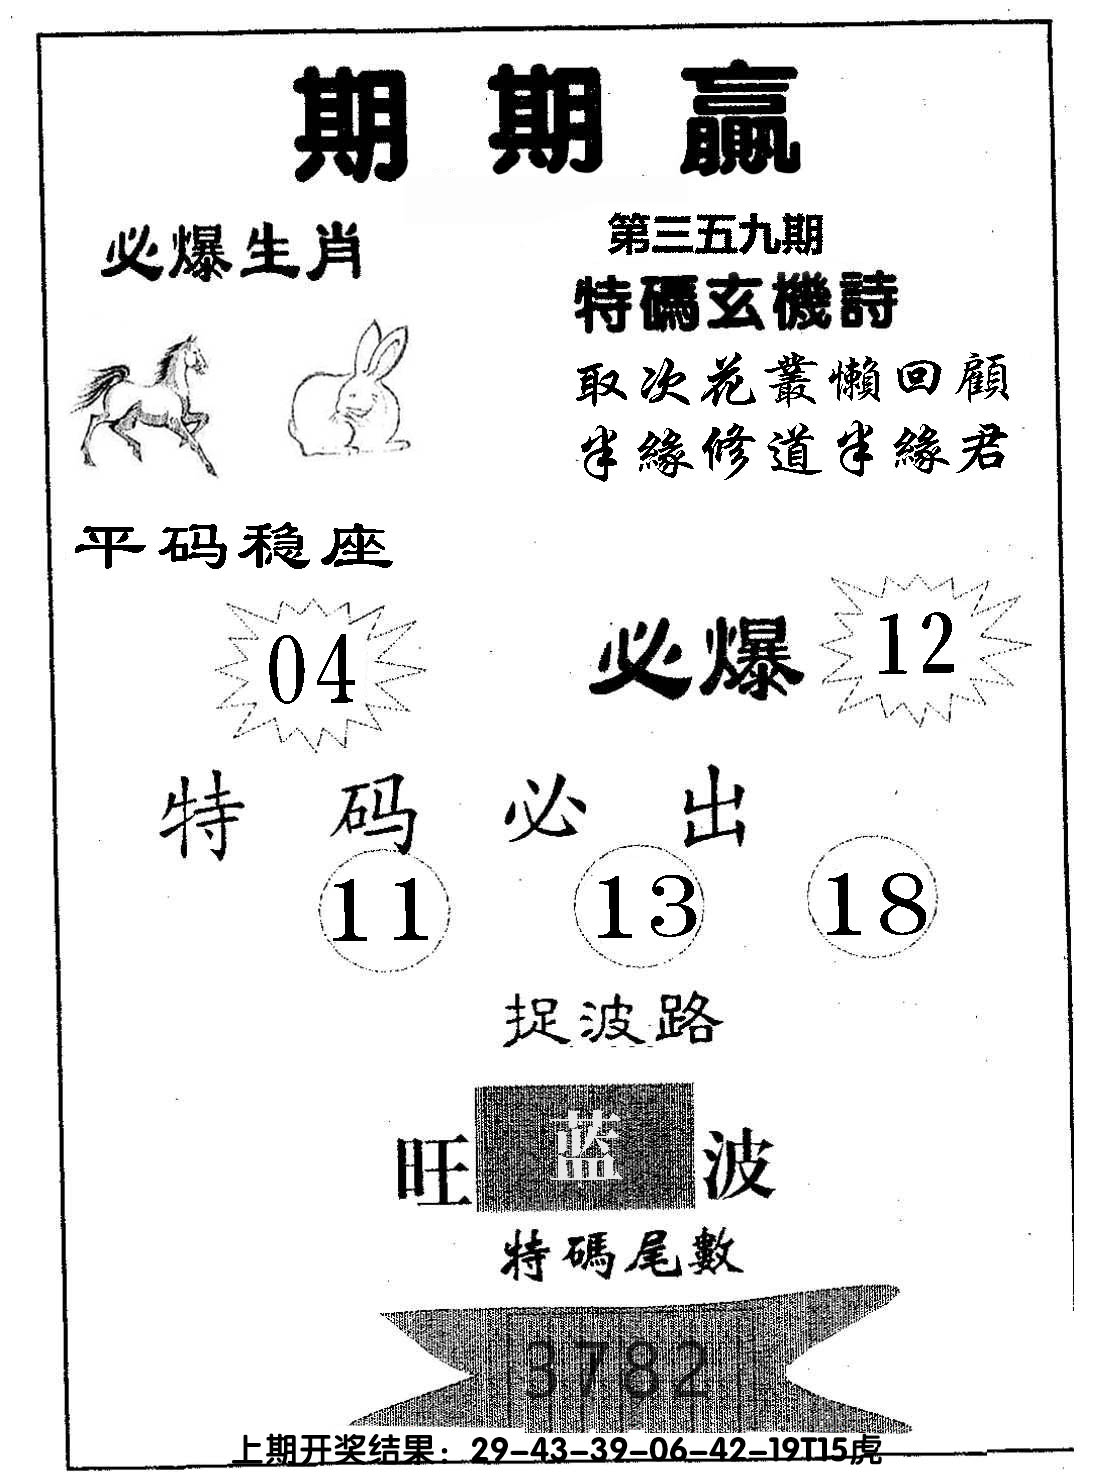 期期赢
必爆生肖
第三五九期
特碼玄機詩
取次花叢懶回顧
半緣修道半緣君
平码稳座
04
必爆
12
特码必出
11 13 18
捉波路
旺蓝波
特碼尾數
3782
上期开奖结果：29-43-39-06-42-19T15虎